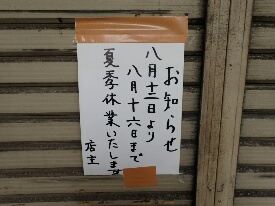 お知らせ
八月十二日より
八月十六日まで
夏季休業いたします
店主